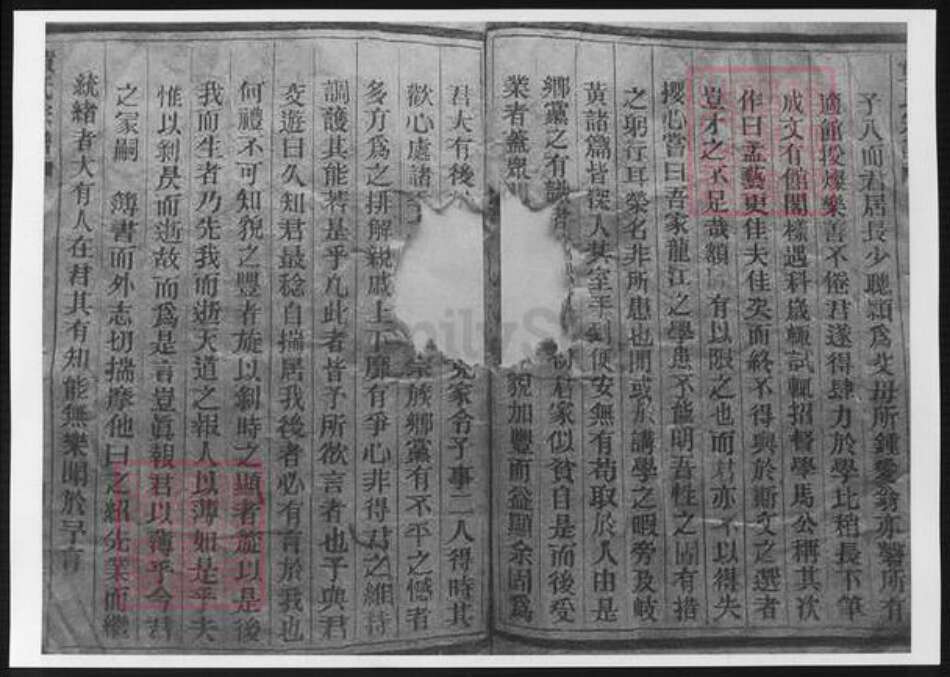 子八而君居長少聰穎爲父母所鍾愛翁亦罄所有
適館投燦樂善不倦君遂得肆力於學比稍長下筆
成文有館閣樣遇科歲輒試輒招督學馬公稱其次
作曰孟藝更佳夫佳矣而終不得與於斯文之選者
豈才之不足哉額有以限之也而君亦不以得失
攖心嘗曰吾家龍江之學患不能明吾性之固有措
之躬行耳榮名非所患也間或於講學之暇旁及岐
黃諸篇皆探人其室平到便安無有苟取於人由是
鄉黨之有 君家似貧自是而後受
業者蓋眾 貌加豐而益顯余固爲
君大有後 克家令子事二人得時其
歡心處諸 宗族鄉黨有不平之憾者
多方爲之排解親戚上下靡有爭心非得君之維持
調護其能若是乎凡此者皆予所欲言者也予與君
交遊曰久知君最稔自揣居我後者必有言於我也
何禮不可知貌之豐者旋以創時之顯者旋以是後
我而生者乃先我而逝天道之報人以薄如是乎夫
惟以剥昃而逝故而爲是言豈真報君以薄乎今君
之冢嗣 簿書而外志切揣摩他日之紹先業而繼
統緒者大有人在君其有知能無樂聞於予言